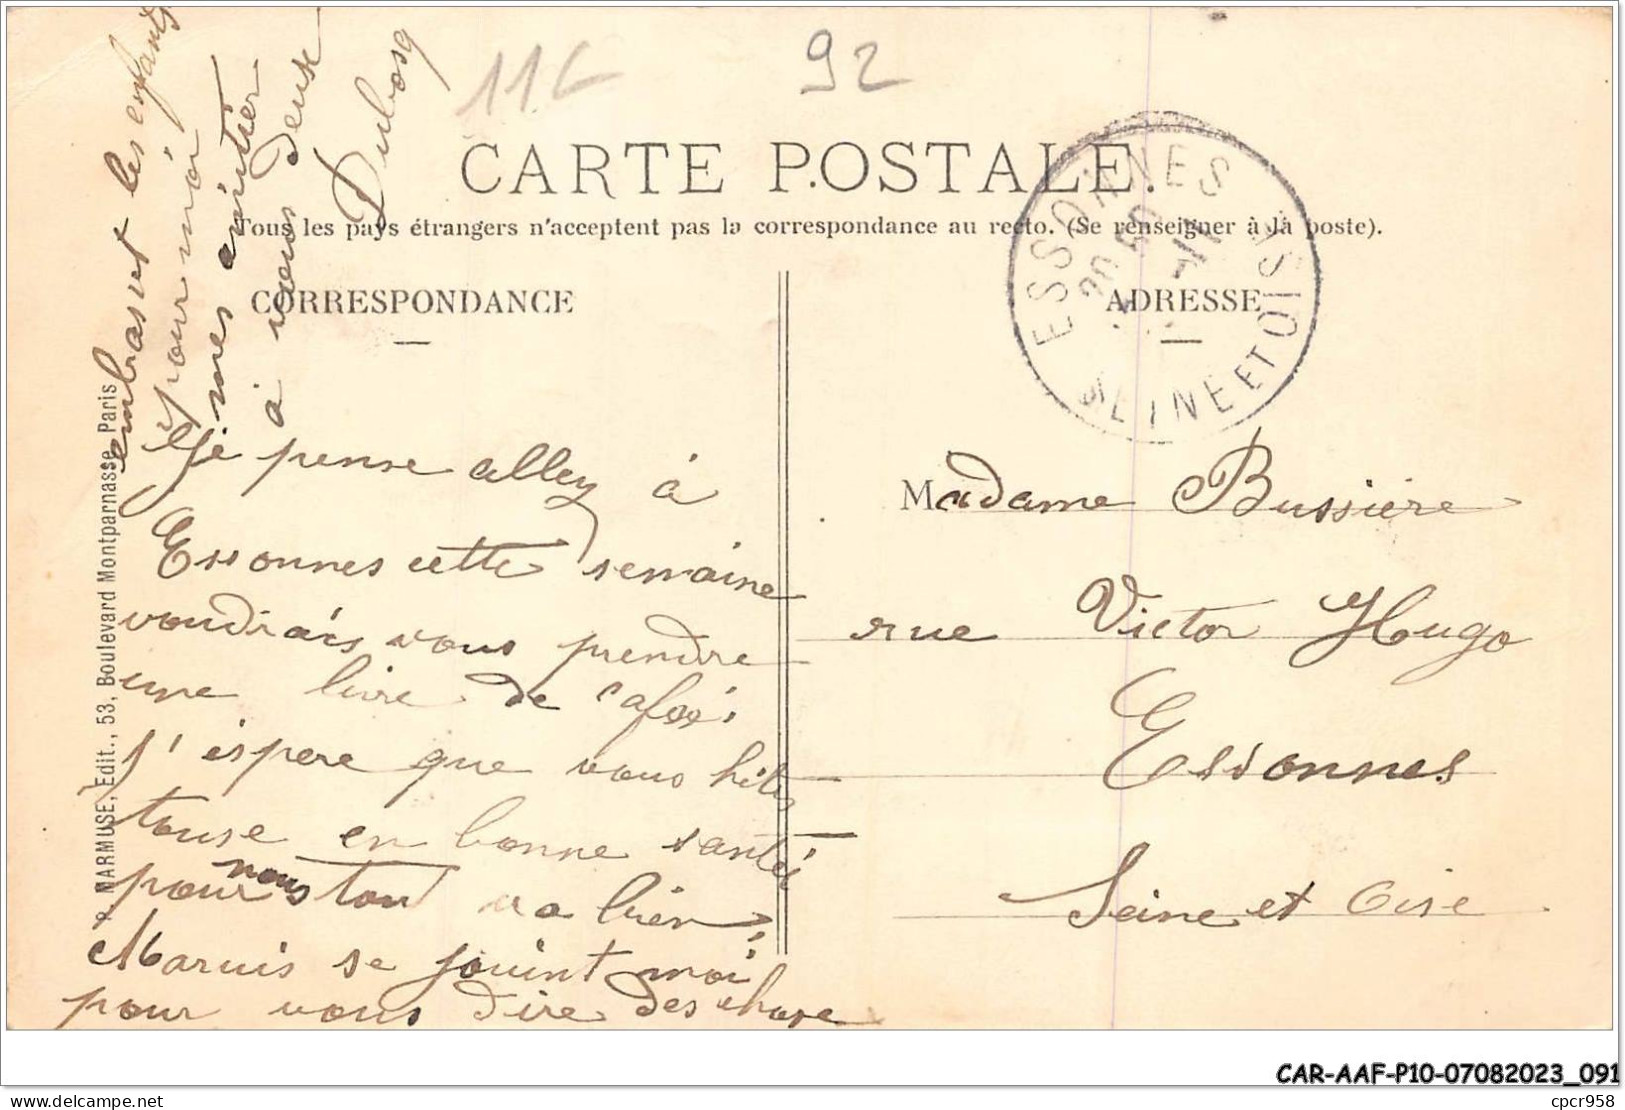 11C
92
CARTE POSTALE.
Tous les pays étrangers n'acceptent pas la correspondance au recto. (Se renseigner à la poste).
CORRESPONDANCE
ADRESSE
ESSONNES
SEINE ET OISE
P. MARMUSE, Edit., 53, Boulevard Montparnasse, Paris
Je pense alley à
Essonnes cette semaine
voudrais vous prendre
une livre de Café.
J'espere que vous
touse en bonne santé
pour nous tout va bien
se jouint moi
pour vous dire des chose
embrasset les enfants
pour moi
mes amitier
à vous deuse
Dubosq
Madame Bussière
rue Victor Hugo
Essonnes
Seine et Oise
CAR-AAF-P10-07082023_091
delcampe.net
cpcr958